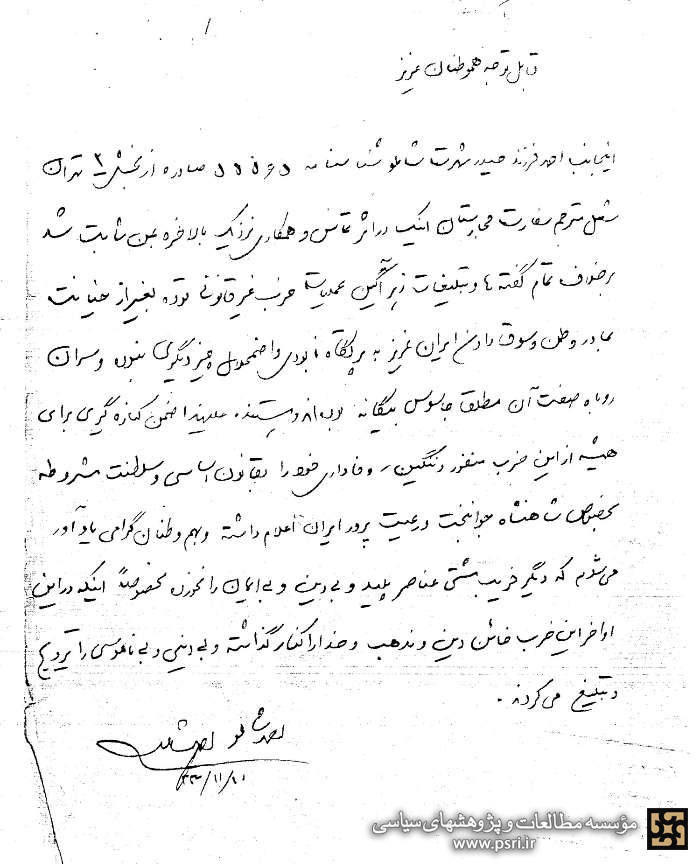 قابل توجه هموطنان عزیز
اینجانب احمد فرزند حیدر شهرت شاملو شناسنامه صادره از بخش ۲ تهران
شغل مترجم سفارت مجارستان اینک در اثر تماس و همکاری نزدیک بالاخره بمن ثابت شد
برخلاف تمام گفته ها و تبلیغات زهرآگین عملیات حزب غیرقانونی توده بغیر از خیانت
بمادر وطن و سوق دادن ایران عزیز به پرتگاه نابودی و اضمحلال چیز دیگری نبوده و سران
روباه صفت آن مطلقا جاسوس بیگانه بوده اند و هستند. علیهذا ضمن کناره گیری برای
همیشه از این حزب منفور و ننگین، وفاداری خود را بقانون اساسی و سلطنت مشروطه
بخصوص شاهنشاه جوانبخت و رعیت پرور ایران اعلام داشته و بهم وطنان گرامی یادآور
می شوم که دیگر فریب مشتی عناصر پلید و بی دین و بی ایمان را نخورن مخصوصاً اینکه در این
اواخر این حزب خائن دین و مذهب و خدا را کنار گذاشته و بی دینی و بی ناموسی را ترویج
و تبلیغ می کردند.
احمد شاملو
۳۳/۱۱/۱۰
مؤسسه مطالعات و پژوهشهای سیاسی
www.psri.ir